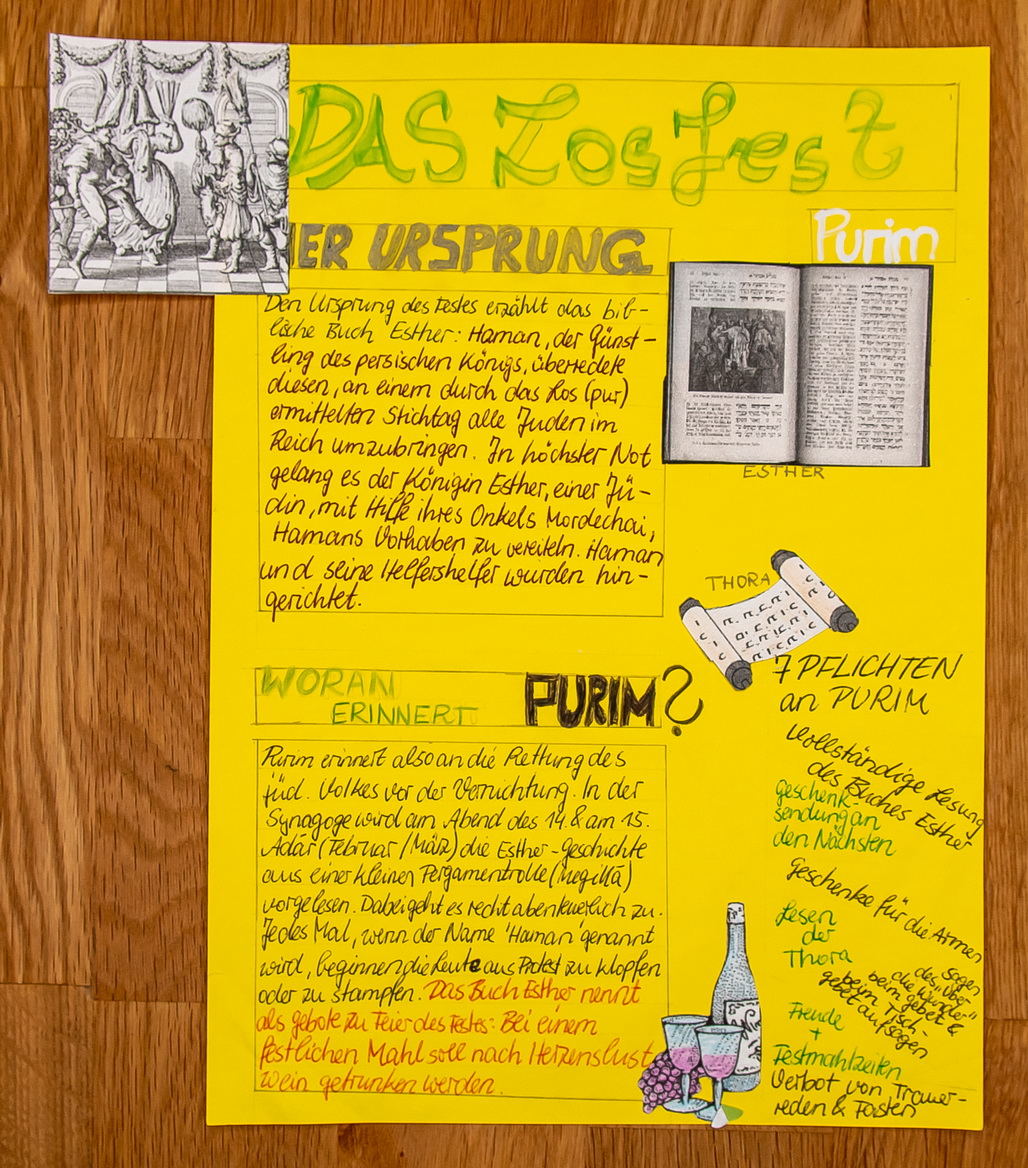 DAS Losfest
Purim
DER URSPRUNG
Den Ursprung des Festes erzählt das bib-
lische Buch Esther: Haman, der Günst-
ling des persischen Königs, überredete
diesen, an einem durch das Los (pur)
ermittelten Stichtag alle Juden im
Reich umzubringen. In höchster Not
gelang es der Königin Esther, einer Jü-
din, mit Hilfe ihres Onkels Mordechai,
Hamans Vorhaben zu vereiteln. Haman
und seine Helfershelfer wurden hin-
gerichtet.
ESTHER
THORA
WORAN
ERINNERT PURIM?
Purim erinnert also an die Rettung des
jüd. Volkes vor der Vernichtung. In der
Synagoge wird am Abend des 14. & am 15.
Adár (Februar/März) die Esther-geschichte
aus einer kleinen Pergamentrolle (Megillá)
vorgelesen. Dabei geht es recht abenteuerlich zu.
Jedes Mal, wenn der Name 'Haman' genannt
wird, beginnen die Leute aus Protest zu klopfen
oder zu stampfen. Das Buch Esther nennt
als gebote zu Feier des Festes: Bei einem
festlichen Mahl soll nach Herzenslust
Wein getrunken werden.
7 PFLICHTEN
an PURIM
Vollständige Lesung
des Buches Esther
Geschenk-
sendung an
den Nächsten
Geschenke für die Armen
Lesen
der
Thora
Sagen
des "Über
die Wunder"
beim gebet &
beim Tisch-
gebet aufsagen
Freude
+
Festmahlzeiten
Verbot von Trauer-
reden & Fasten